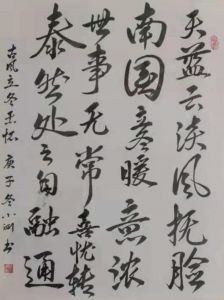 天蓝云淡风抚脸
南国冬暖意浓
世事无常喜忧转
泰然处之自融通
古风立冬 庚子冬 小 书